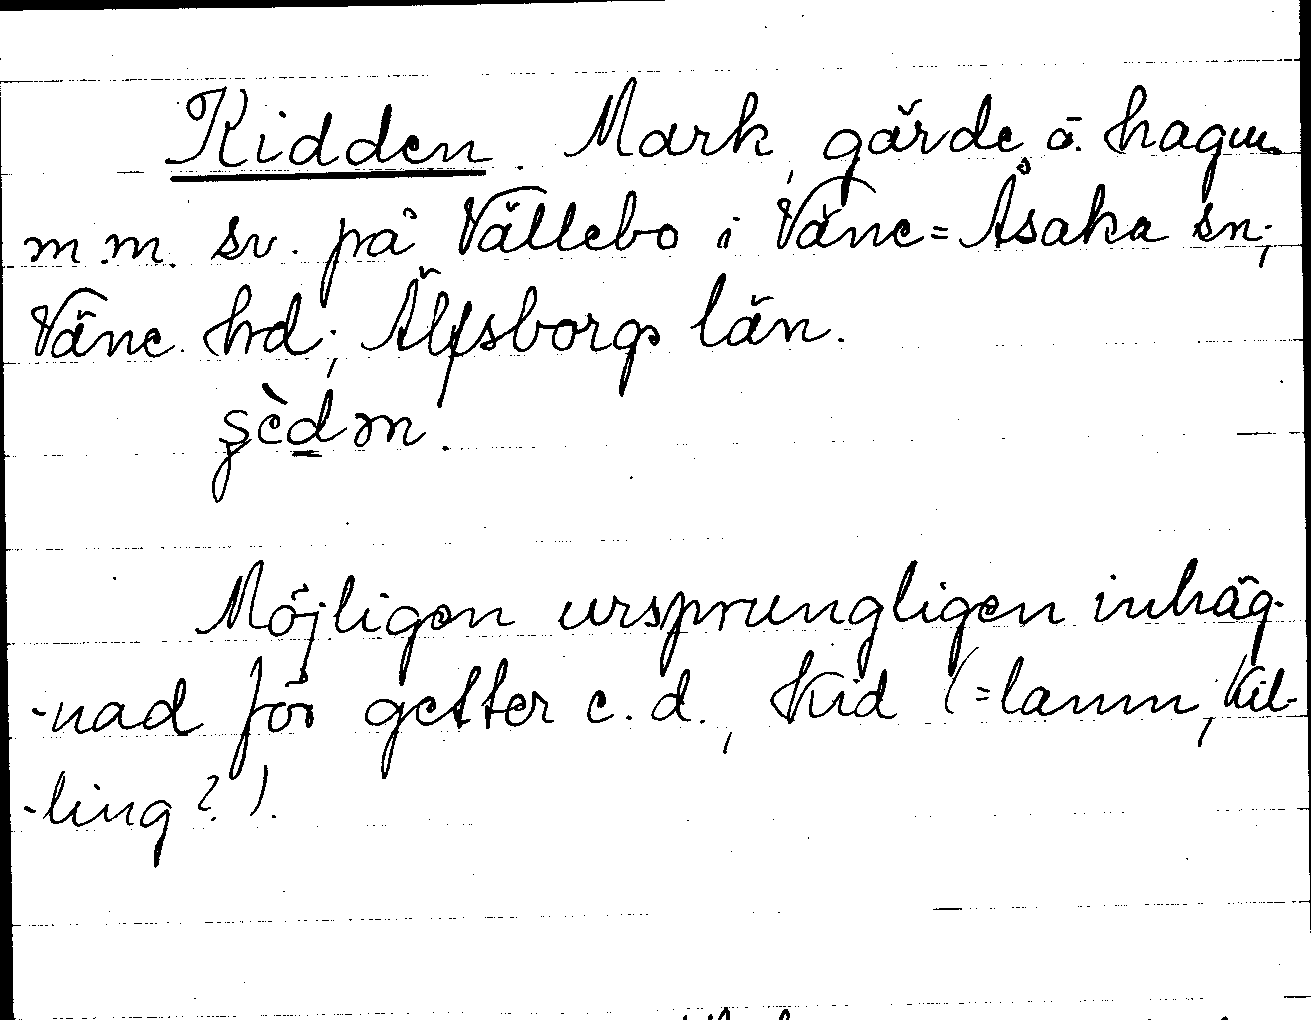 Kidden. Mark, gärde, ö. hagm.
m.m. sv. på Vällebo i Väne=Åsaka sn;
Väne hd; Älfsborgs län.
şèdən.
Möjligen ursprungligen inhäg-
-nad för getter e.d., Kid (=lamm, kil-
-ling?).